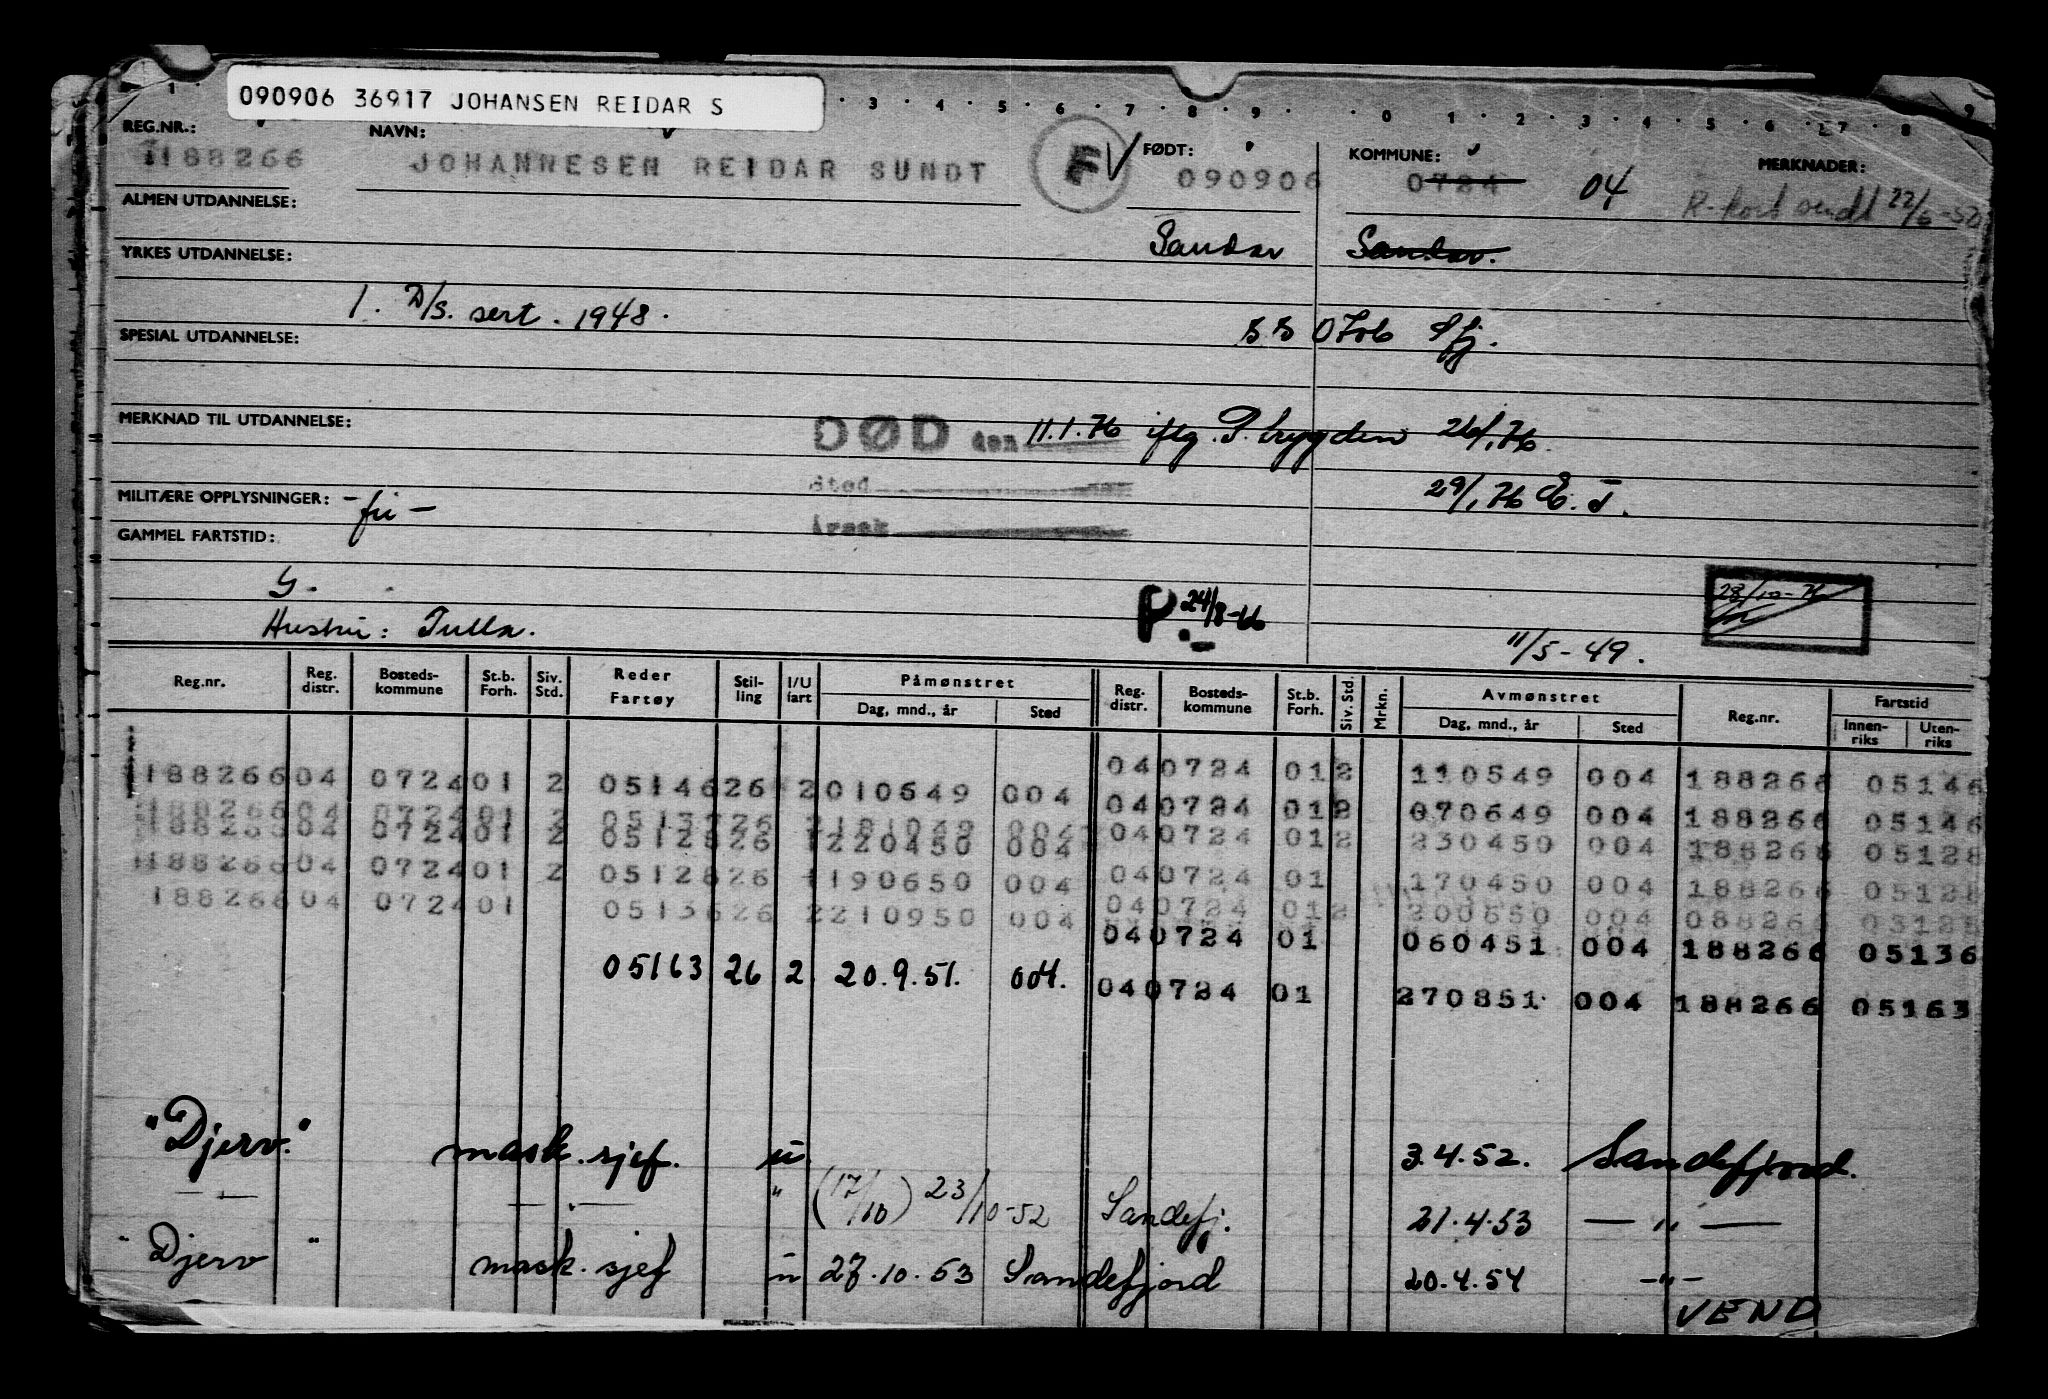 090906 36917 JOHANSEN REIDAR S
REG.NR.: NAVN: FØDT: KOMMUNE: MERKNADER:
188266 JOHANNESEN REIDAR SUNDT F 090906 0724 04 R-kort sendt 22/6-52
ALMEN UTDANNELSE:
Sandar Sandar.
YRKES UTDANNELSE:
1. D/S. sert. 1948.
SPESIAL UTDANNELSE:
MERKNAD TIL UTDANNELSE:
DØD den 11.1.76 iflg. P. trygden 26/1.76.
Sted
29/1.76 E. T.
MILITÆRE OPPLYSNINGER: - fri -
Årsak
GAMMEL FARTSTID:
P. 24/8-66
28/10-76
Hustru: Tulla.
11/5-49.
Reg.nr. Reg. distr. Bosteds-kommune St.b. Forh. Siv. Std. Reder Fartøy Stil-ling I/U fart Påmønstret Dag, mnd., år Sted Reg. distr. Bosteds-kommune St.b. Forh. Siv. Std. Mrkn. Avmønstret Dag, mnd., år Sted Reg.nr. Fartstid Innen-riks Uten-riks
188266 04 0724 01 2 05146 26 2 010649 004 04 0724 01 2 110549 004 188266 05146
188266 04 0724 01 2 26 2 004 04 0724 01 2 070649 004 188266 05146
188266 04 0724 01 2 05128 26 1 220450 004 04 0724 01 2 230450 004 188266 05128
188266 04 0724 01 2 05128 26 1 190650 004 04 0724 01 170450 004 188266 05128
188266 04 0724 01 05136 26 2 210950 004 04 0724 01 2 200650 004 088266 05128
04 0724 01 060451 004 188266 05136
05163 26 2 20.9.51. 004. 04 0724 01 270851 004 188266 05163
"Djerv." mask. sjef. u. 3.4.52. Sandefjord.
— — — . — " (17/10) 23/10-52 Sandefj. 21.4.53 — " —
"Djerv" mask. sjef u 27.10.53 Sandefjord 20.4.54 - " -
VEND